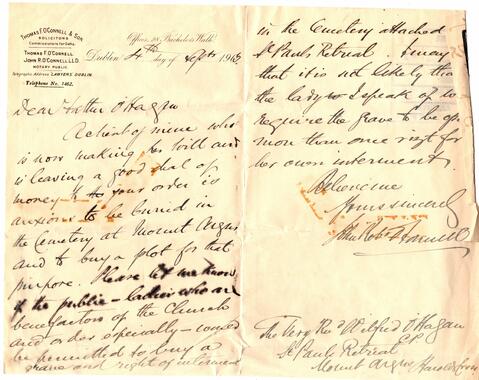 THOMAS F. O'CONNELL & SON,
SOLICITORS
Commissioners for Oaths.
THOMAS F. O'CONNELL
JOHN R. O'CONNELL LL.D.
NOTARY PUBLIC
Telegraphic Address LAWYERS DUBLIN.
Telephone No. 1462.
Offices, 28 Bachelor's Walk
Dublin 4th day of Sept 19
Dear Father O'Hagan
A client of mine who
is now making her will and
is leaving a good deal of
money to your order is
anxious to be buried in
the Cemetery at Mount Argus
and to buy a plot for that
purpose. Please let me know
if the public – ladies who are
benefactors of the Church
and order especially – would
be permitted to buy a
grave and right of interment
in the Cemetery attached
St Pauls Retreat. I may
that it is not likely that
the lady I speak of to
require the grave to be
more than once viz for
her own interment.
Believe me
Yours sincerely
John Robt O'Connell
The Very Revd Wilfrid O'Hagan
C.P.
St Pauls Retreat
Mount Argus Harolds Cross